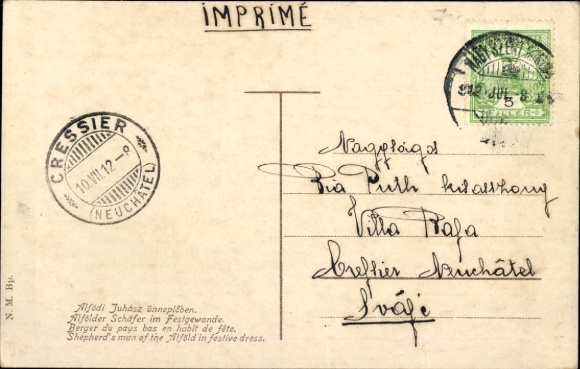 IMPRIMÉ
912 JUL.-8
5
FILLER
CRESSIER
10.VII.12-8
(NEUCHÂTEL)
Nagysàgs
Pia Ruth kisasszony
Villa Rafa
Cressier Neuchâtel
Svájc
N. M. Bp.
Alfödi Juhász ünneplőben.
Alfölder Schäfer im Festgewande.
Berger du pays bas en habit de fête.
Shepherd's man of the Alföld in festive dress.